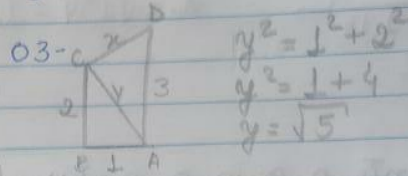 03-
D
x
C
y
3
2
B 1 A
y² = 1² + 2²
y² = 1 + 4
y = √5